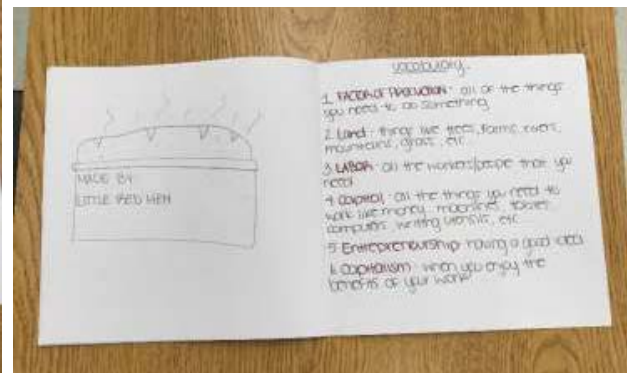 MADE BY
LITTLE RED HEN
vocabulary
1. FACTOR OF PRODUCTION - all of the things
you need to do something
2. Land - things like trees, farms, rivers,
mountains, grass, etc.
3. LABOR - all the workers/people that you
need
4. capital - all the things you need to
work like money, machines,
computers, writing utensils, etc.
5. Entrepreneurship - having a good idea
6. capitalism - when you enjoy the
benefits of your work